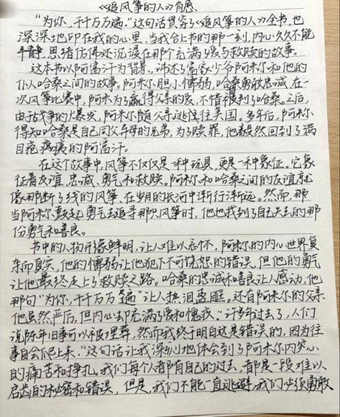 《追风筝的人》有感
"为你,千千万万遍。"这句话贯穿了《追风筝的人》全书,也
深深地印在我的心里。当我合上书的那一刻,内心久久不能
平静,思绪仿佛还沉浸在那个充满爱与救赎的故事。
这本书以阿富汗为背景,讲述了富家少爷阿米尔和他的
仆人哈桑之间的故事。阿米尔胆小懦弱,哈桑勇敢忠诚。在一
次风筝比赛中,阿米尔为赢得父亲的爱,不惜 哈桑。之后,
由于战争的爆发,阿米尔随父亲逃往美国。多年后,阿米尔
得知哈桑是自己同父异母的兄弟,为了赎罪,他毅然回到了满
目疮痍的阿富汗。
在这个故事中,风筝不仅仅是一种玩具,更是一种象征。它象
征着友谊、忠诚、勇气和救赎。阿米尔和哈桑之间的友谊就
像那断了线的风筝,在岁月的长河中渐行渐远。然而,那
当阿米尔鼓起勇气去追寻那只风筝时,他也找到了自己失去的那
份勇气和善良。
书中的人物形象鲜明,让人难以忘怀。阿米尔的内心世界复
杂而真实,他的懦弱让他犯下不可饶恕的错误,但他的勇气
让他最终走上了救赎之路。哈桑的忠诚和善良让人感动,他
那句"为你,千千万万遍"让人热泪盈眶。还有阿米尔的父亲
他虽然严厉,但内心却充满了爱和愧疚。"许多年过去了,人们
说陈年旧事可以被埋葬,然而我终于明白这是错误的,因为往
事自会爬上来。"这句话让我深刻地体会到了阿米尔内心
的痛苦和挣扎。我们每个人都有自己的过去,都是一段难以
启齿的秘密和错误,但是,我们不能一直逃避,我们必须勇敢